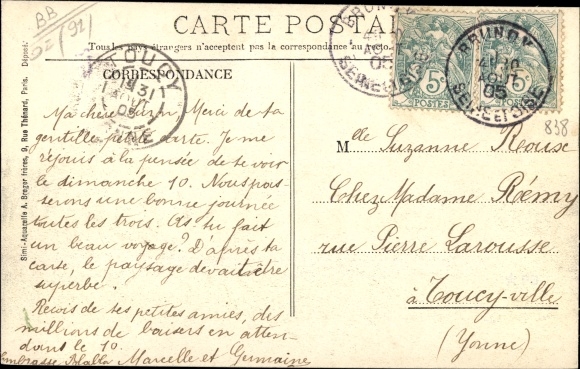 BB
02/92
CARTE POSTALE
Tous les pays étrangers n'acceptent pas la correspondance au recto.
CORRESPONDANCE
Simi-Aquarelle A. Breger frères, 9, Rue Thénard, Paris. Déposé.
TOUCY
YONNE
BRUNOY
AOUT
05
SEINE ET OISE
BRUNOY
AOUT
05
SEINE ET OISE
5c
POSTES
5c
POSTES
838
Ma chère Suzon, Merci de ta
gentille petite carte. Je me
réjouis à la pensée de te voir
le dimanche 10. Nous pas-
serons une bonne journée
toutes les trois. As-tu fait
un beau voyage? D'après ta
carte, le paysage devait être
superbe.
Reçois de tes petites amies, des
millions de baisers en atten-
dant le 10.
Embrasse Marcelle et Germaine
Mlle Suzanne Rouse
Chez Madame Rémy
rue Pierre Larousse
à Toucy-ville
(Yonne)